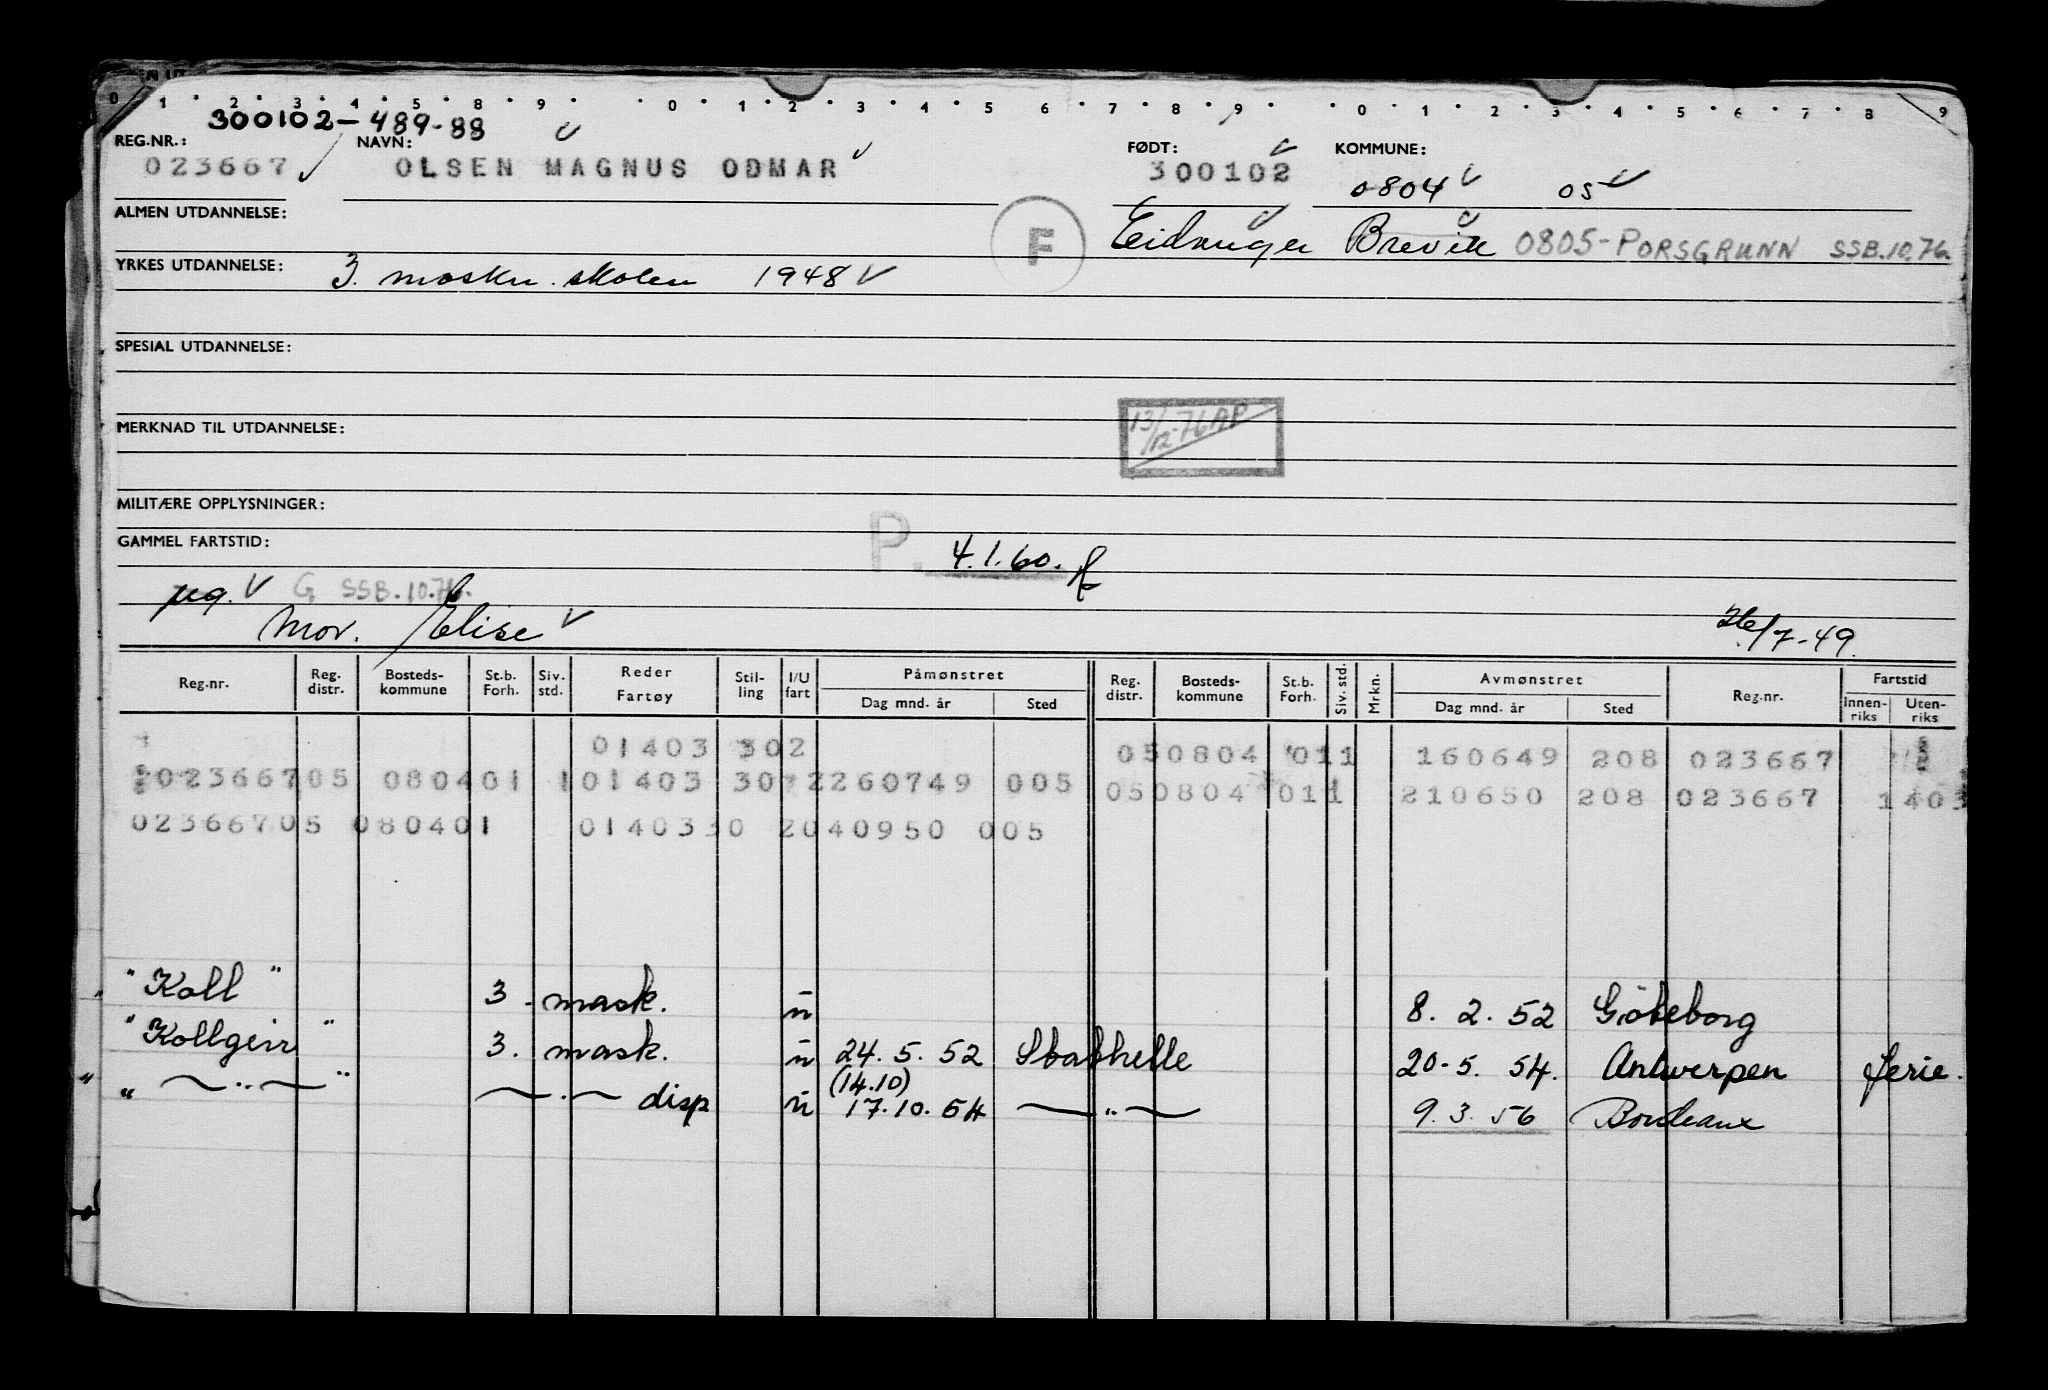 0 1 2 3 4 5 8 9 0 1 2 3 4 5 6 7 8 9 0 1 2 3 4 5 6 7 8 9
300102-489-88
REG.NR.: NAVN: FØDT: KOMMUNE:
023667 OLSEN MAGNUS ODMAR 300102 0804 05
ALMEN UTDANNELSE: F Eidanger Brevik 0805-PORSGRUNN SSB.10.76.
YRKES UTDANNELSE: 3. maskn. skolen 1948
SPESIAL UTDANNELSE:
13/12-76 AP
MERKNAD TIL UTDANNELSE:
MILITÆRE OPPLYSNINGER:
GAMMEL FARTSTID: P. 4.1.60.
ug. G SSB.10.76.
Mor. Elise 26/7-49.
Reg.nr. Reg. distr. Bosteds- kommune St.b. Forh. Siv. std. Reder Fartøy Stil- ling I/U fart Påmønstret Dag mnd. år Sted Reg. distr. Bosteds- kommune St.b. Forh. Siv. std. Mrkn. Avmønstret Dag mnd. år Sted Reg.nr. Fartstid Innen- riks Uten- riks
01403 302 050804 011 160649 208 023667
023667 05 080401 1 01403 30 2 260749 005 050804 011 210650 208 023667 1403
023667 05 080401 01403 30 2 040950 005
" Koll " 3. mask. u 8. 2. 52 Göteborg
" Kollgeir " 3. mask. u 24. 5. 52 Stathelle 20-5. 54. Antwerpen ferie.
(14.10)
" — " — " — . — disp u 17.10. 54 — " — 9. 3. 56 Bordeaux